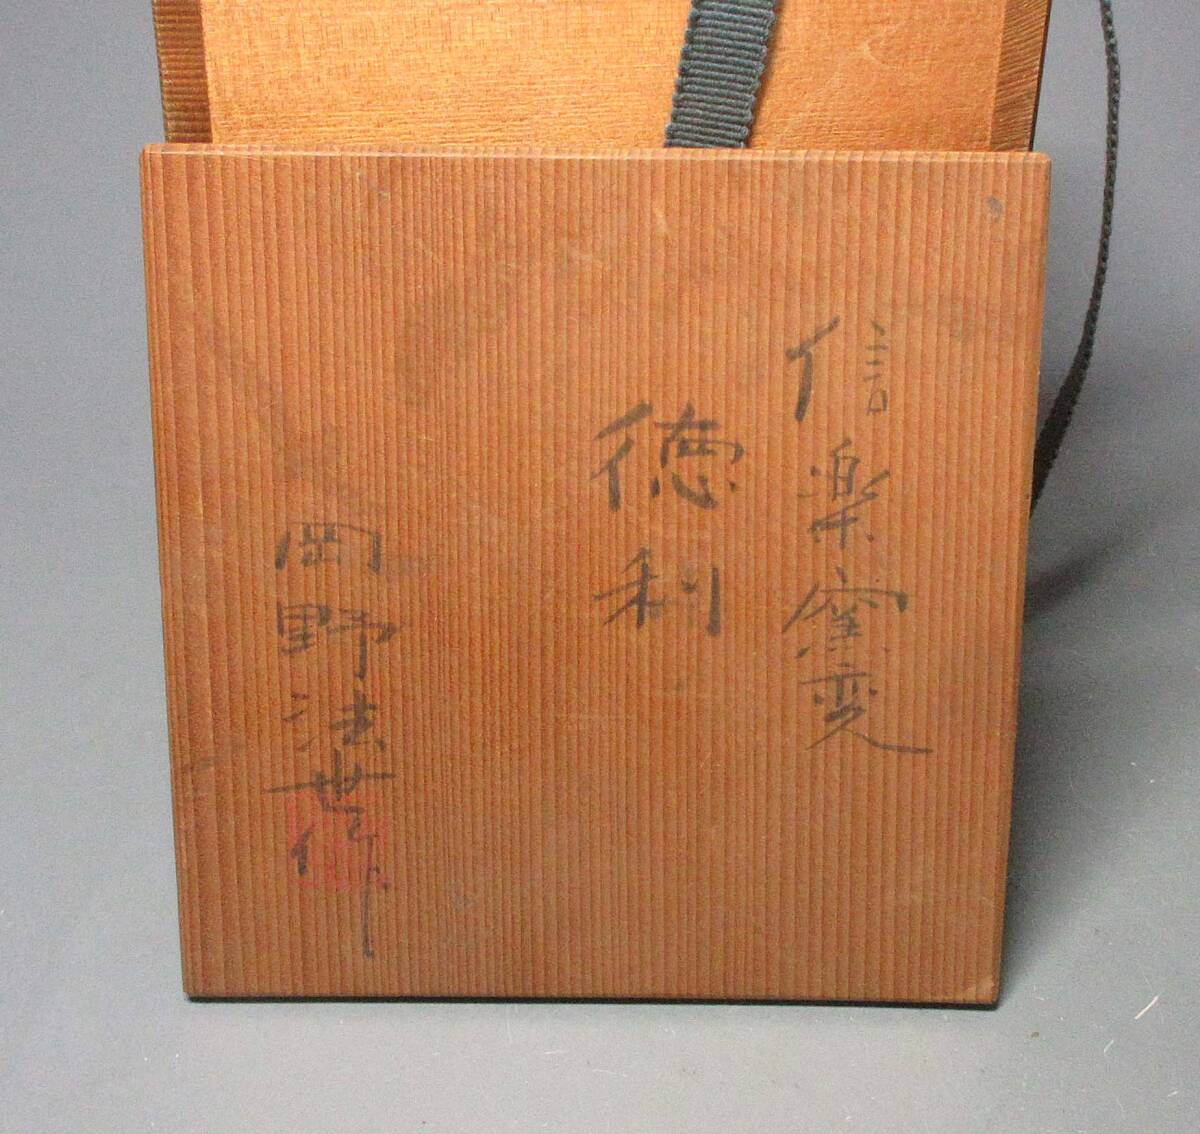 信楽窯変
徳利
岡野法世作